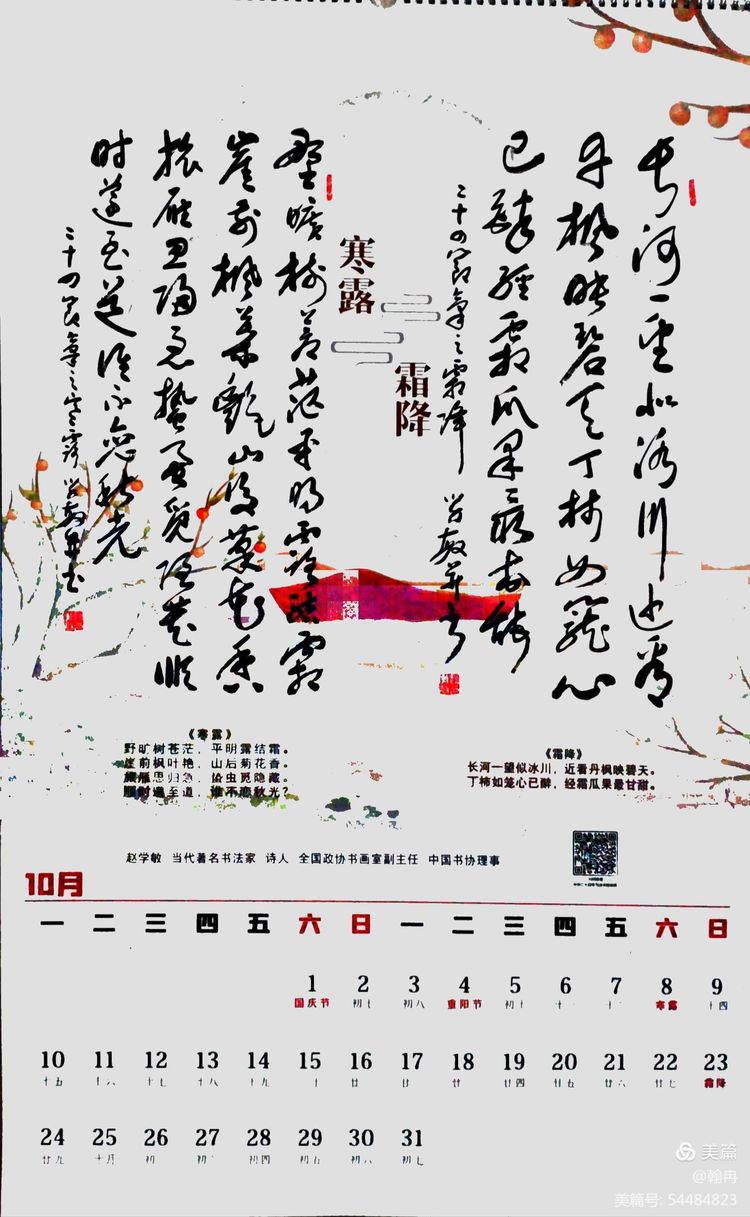 长河一望似冰川近看
丹枫映碧天丁柿如笼心
已醉经霜瓜果最甘甜
二十四节气之霜降 学敏并书
寒露
霜降
野旷树苍茫平明露结霜
崖前枫叶艳山后菊花香
旅雁思归急蛰虫觅隐藏顺
时遵至道谁不恋秋光
二十四节气之寒露 学敏并书
《寒露》
野旷树苍茫，平明露结霜。
崖前枫叶艳，山后菊花香。
旅雁思归急，蛰虫觅隐藏。
顺时遵至道，谁不恋秋光？
《霜降》
长河一望似冰川，近看丹枫映碧天。
丁柿如笼心已醉，经霜瓜果最甘甜。
赵学敏 当代著名书法家 诗人 全国政协书画室副主任 中国书协理事
10月
一 二 三 四 五 六 日 一 二 三 四 五 六 日
1 2 3 4 5 6 7 8 9
国庆节 初七 初八 重阳节 初十 寒露 十四
10 11 12 13 14 15 16 17 18 19 20 21 22 23
十五 十六 十七 十八 十九 廿四 廿五 廿六 廿七 霜降
24 25 26 27 28 29 30 31
廿九 十月 初四 初五 初六 初七
美篇
@翰冉
美篇号: 54484823